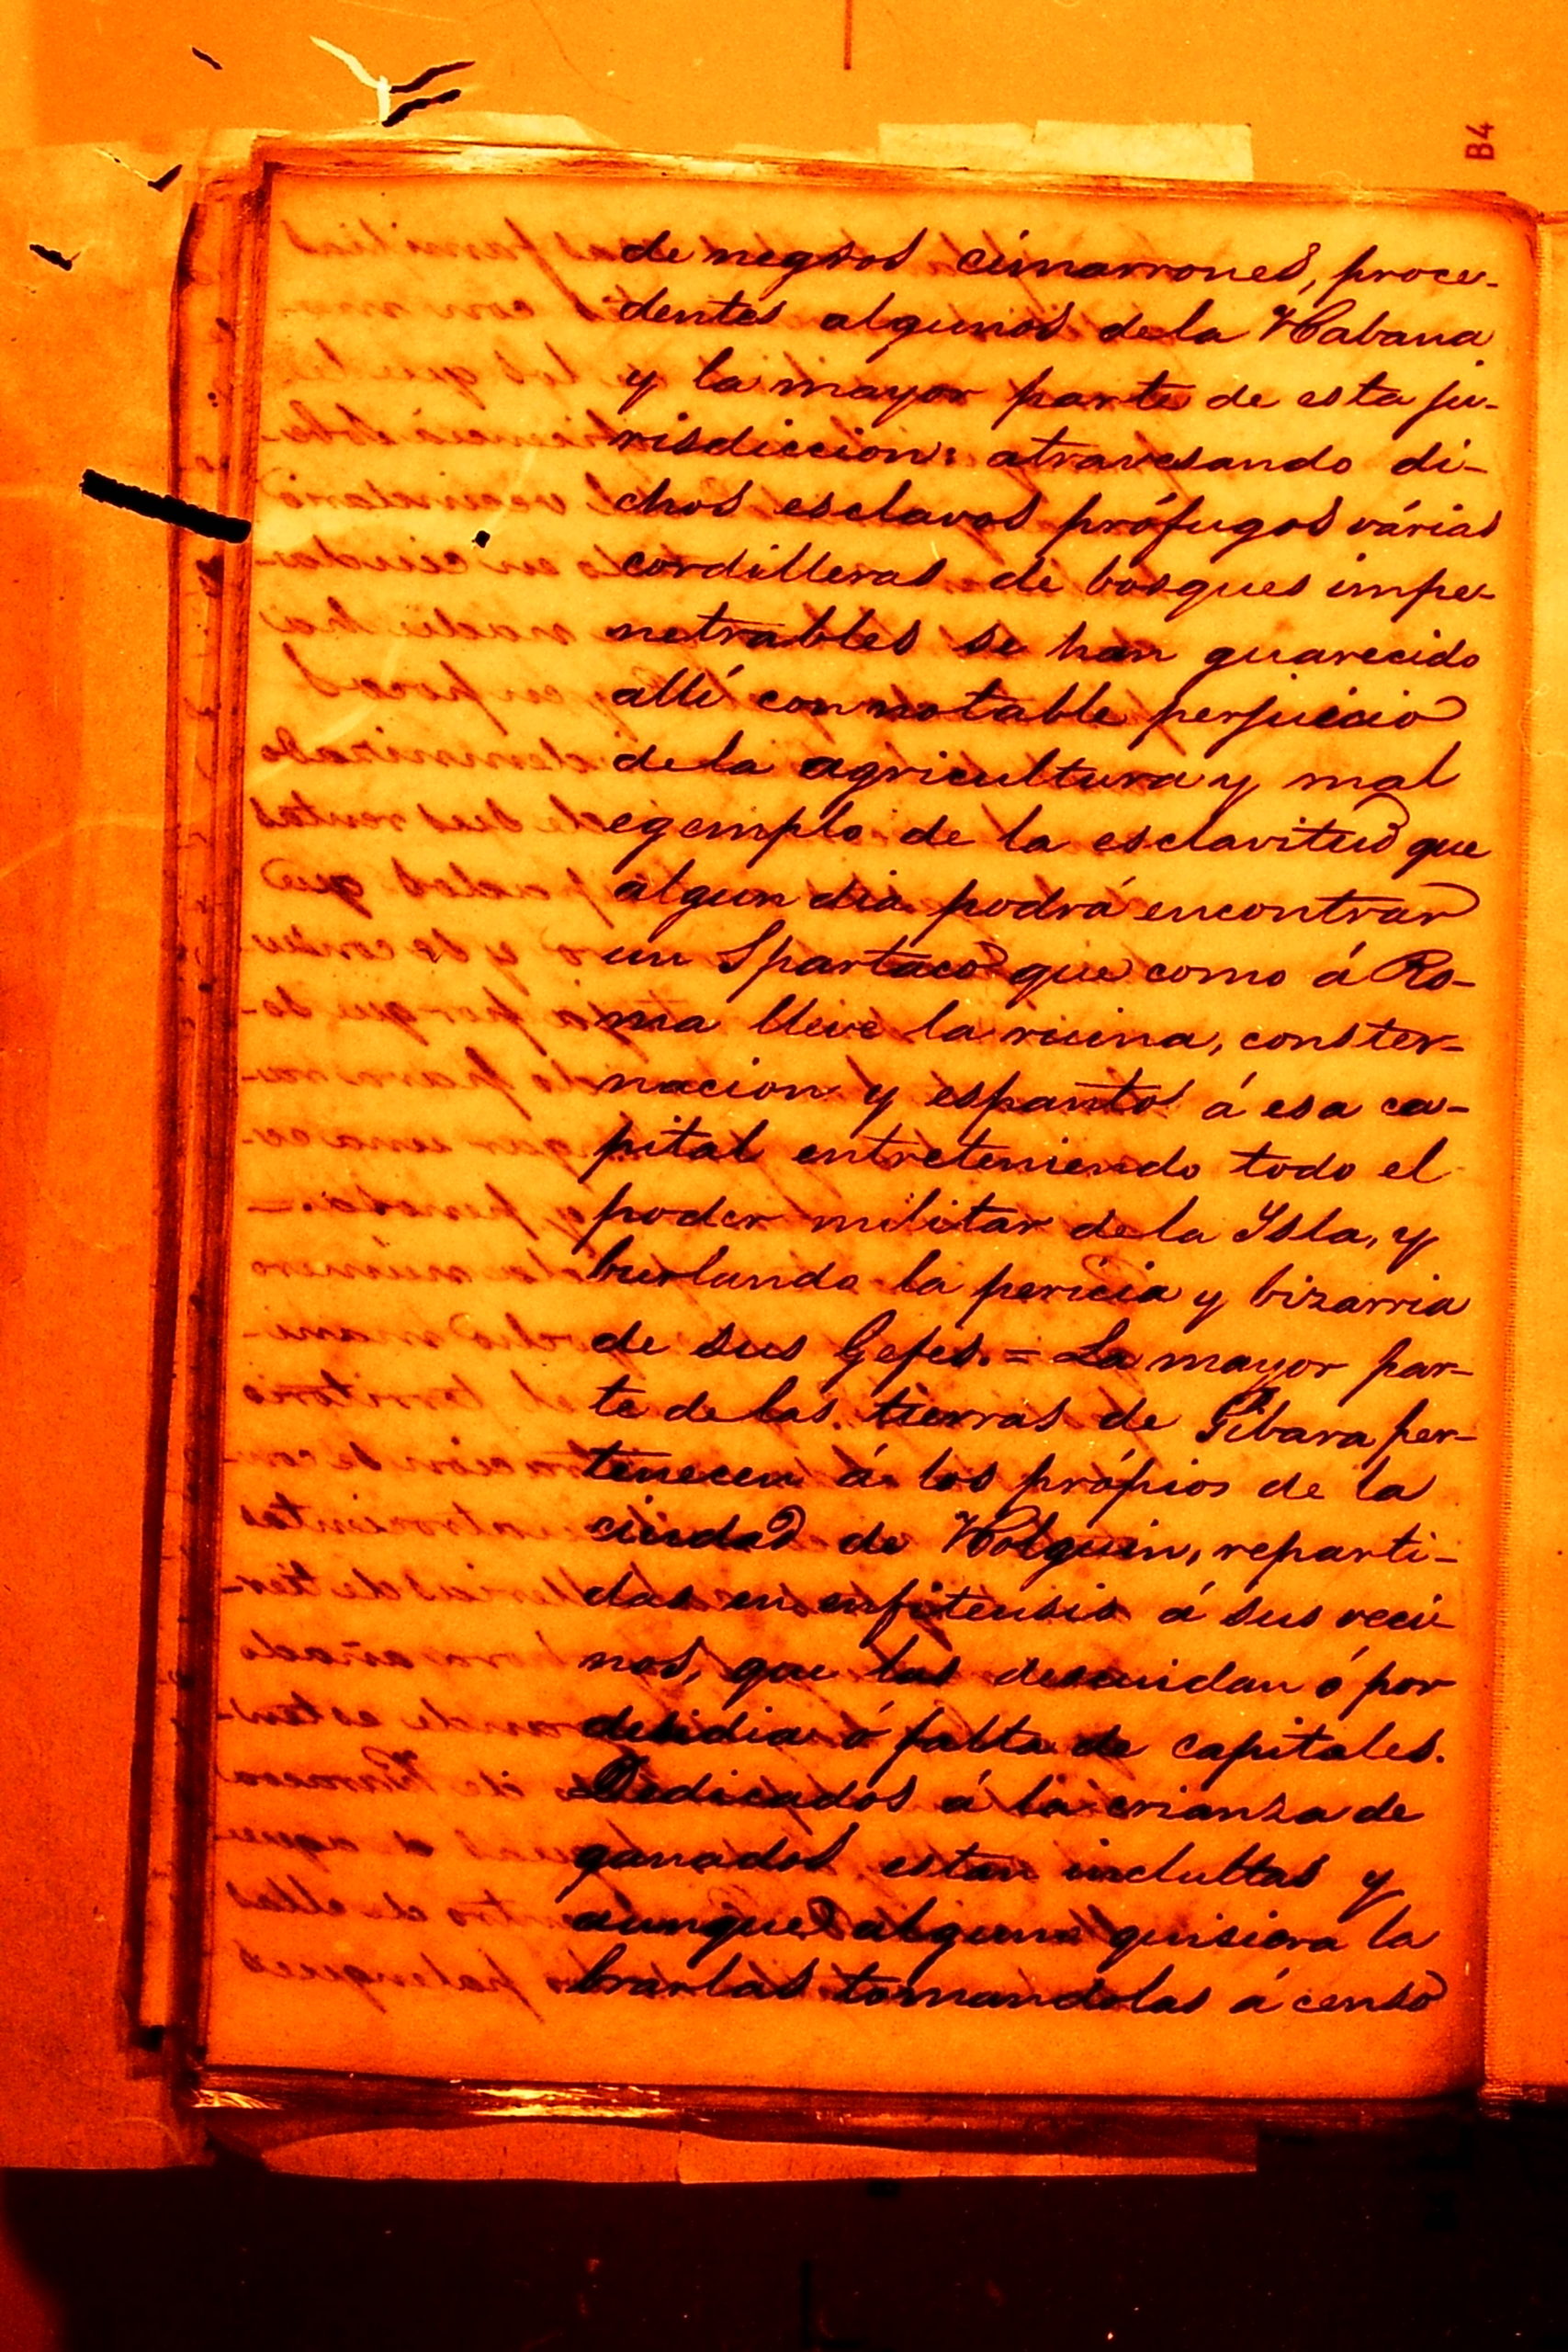 B4
de negros cimarrones, proce-
dentes algunos de la Habana
y la mayor parte de esta ju-
risdiccion: atravesando di-
chos esclavos prófugos várias
cordilleras de bosques impe-
netrables se han guarecido
allí con notable perjuicio
de la agricultura y mal
egemplo de la esclavitud que
algun dia podrá encontrar
un Spartaco que como á Ro-
ma lleve la ruina, conster-
nacion y espanto á esa ca-
pital entreteniendo todo el
poder militar de la Ysla, y
burlando la pericia y bizarria
de sus Gefes. = La mayor par-
te de las tierras de Gibara per-
tenecen á los própios de la
ciudad de Holguin, reparti-
das en enfiteusis á sus veci-
nos, que las descuidan ó por
desidia ó falta de capitales.
Dedicados á la crianza de
ganados estan incultas y
aunque alguno quisiera la
brarlas tomandolas á censo